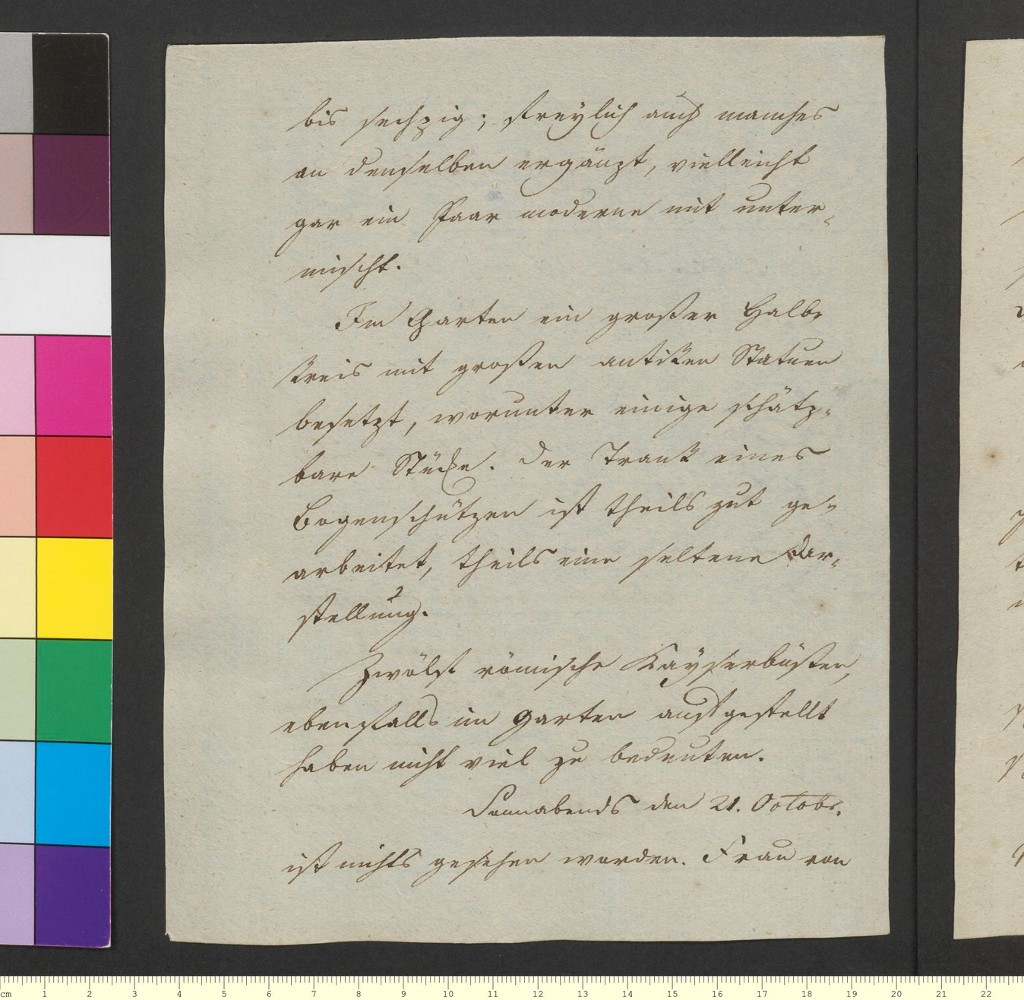 bis sechzig; freylich auch manches
an denselben ergänzt, vielleicht
gar ein Paar moderne mit unter-
mischt.
Im Garten ein großer Halb-
kreis mit großen antiken Statuen
besetzt, worunter einige schätz-
bare Stücke. Der Trank eines
Bogenschützen ist theils gut ge-
arbeitet, theils eine seltene Dar-
stellung.
Zwölf römische Kayserbüsten,
ebenfalls im Garten aufgestellt
haben nicht viel zu bedeuten.
Sonnabends den 21. Octobr.
ist nichts gesehen worden. Frau von
cm 1 2 3 4 5 6 7 8 9 10 11 12 13 14 15 16 17 18 19 20 21 22